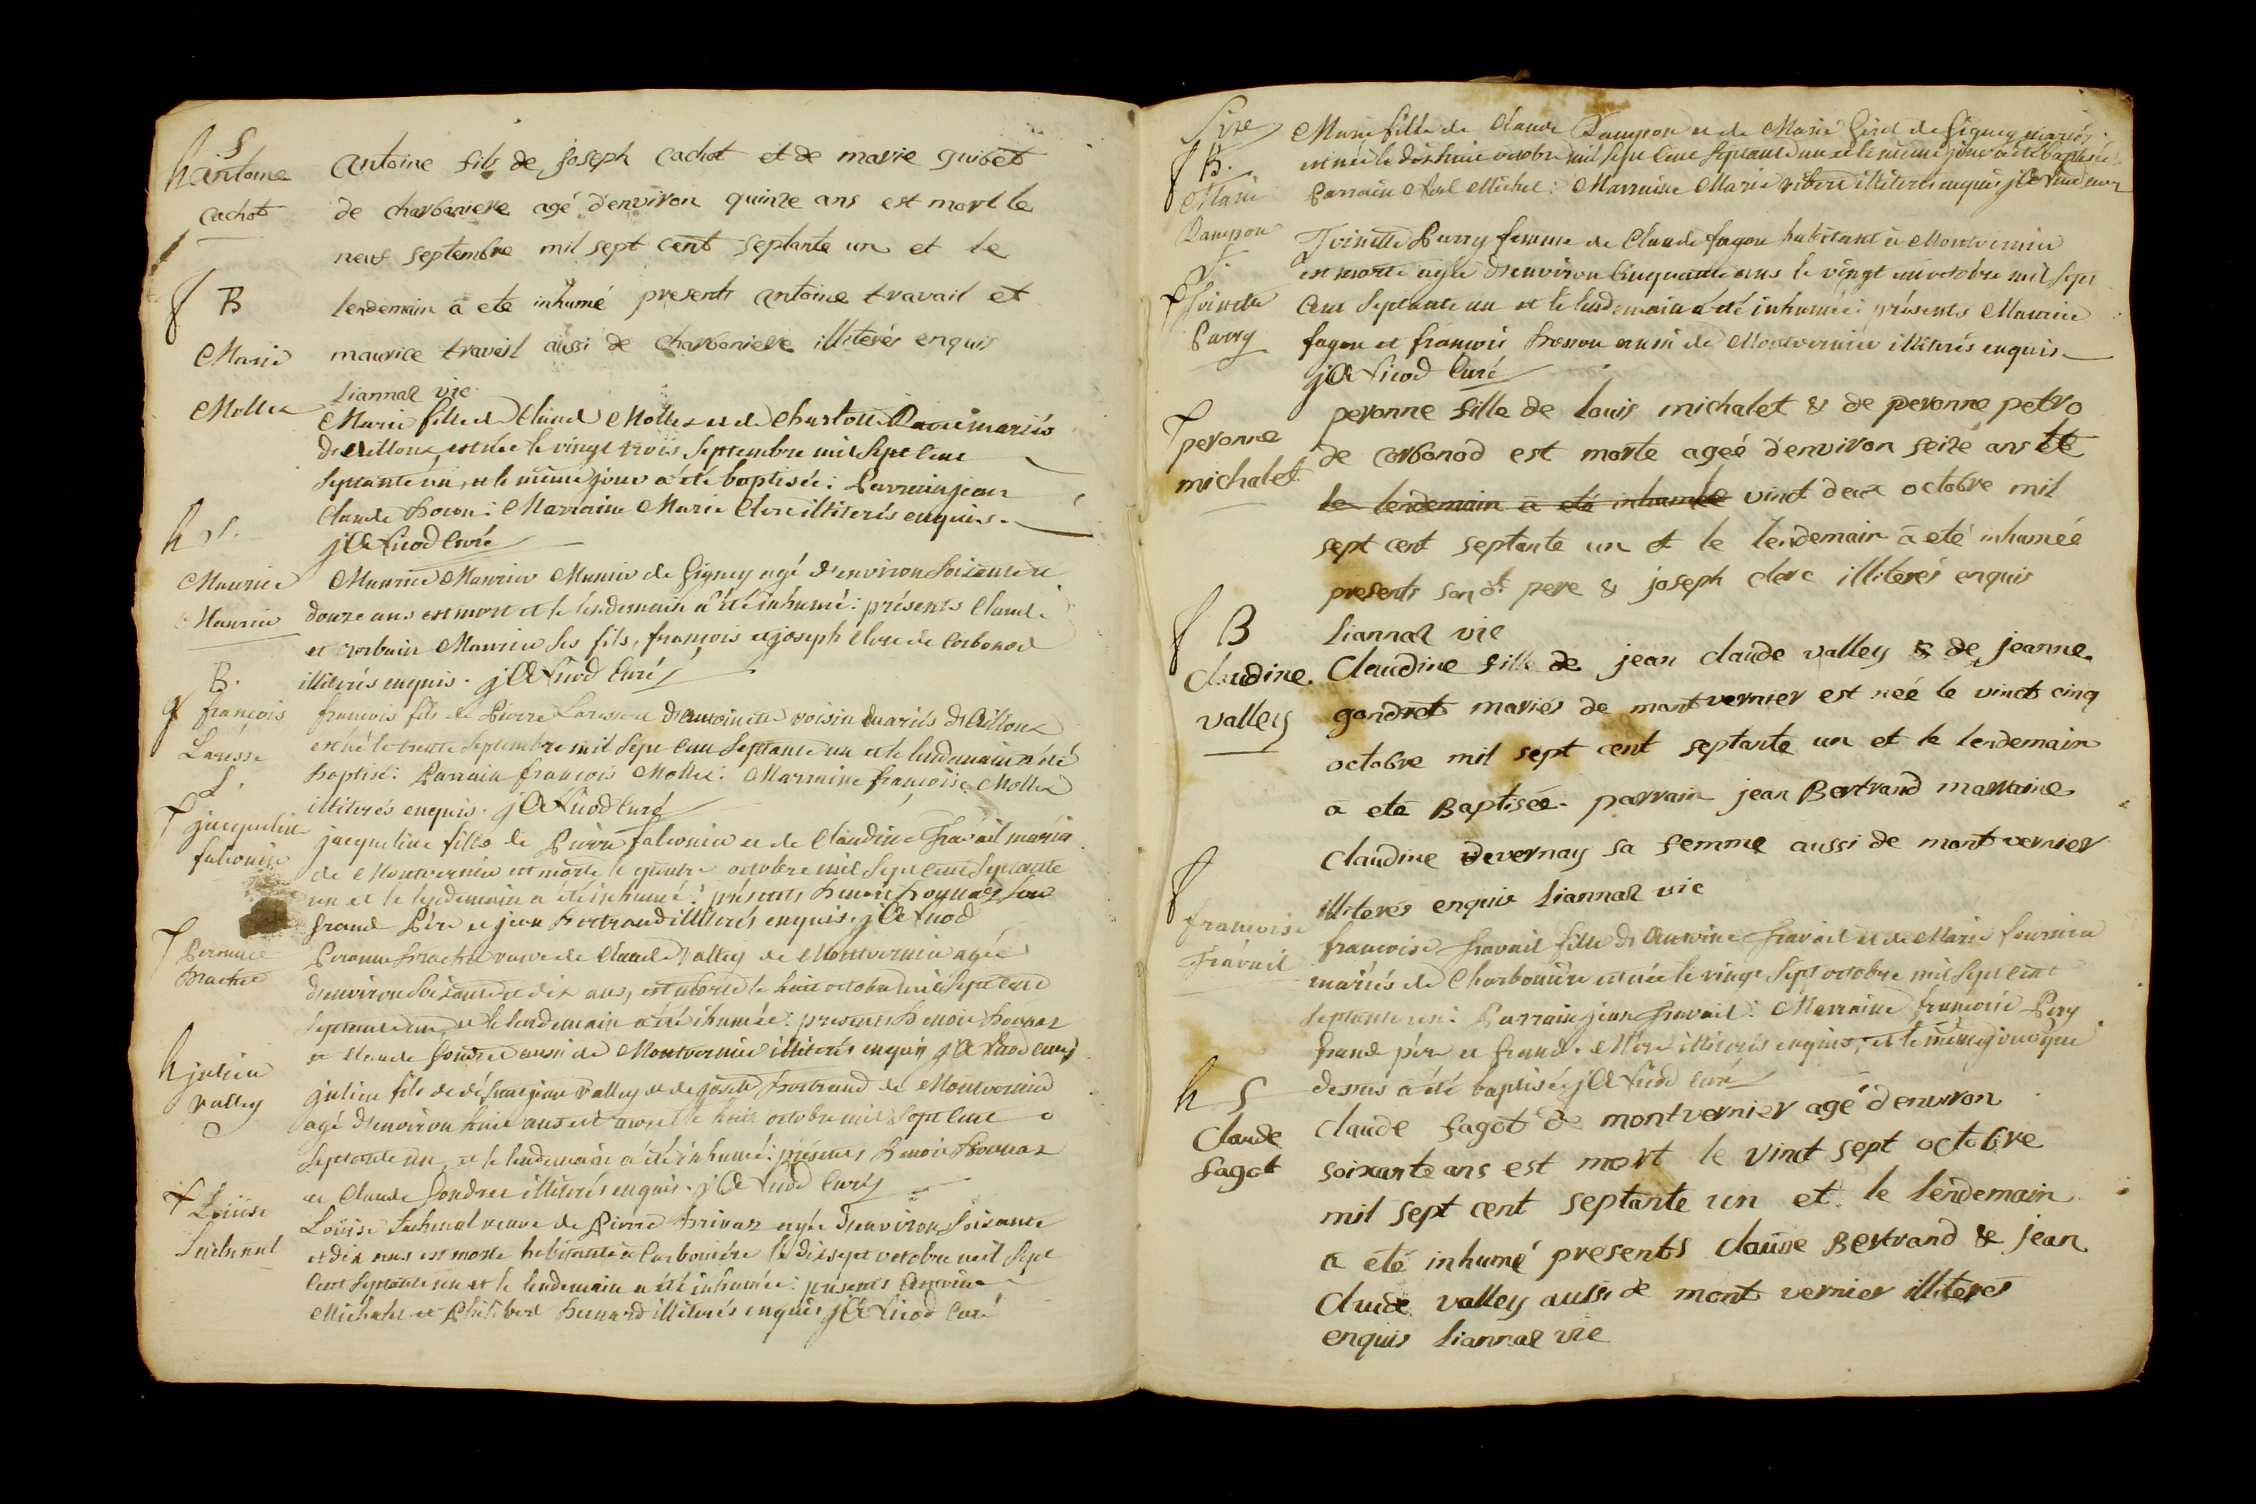 h S
Antoine
Cachot
Antoine fils de joseph Cachot et de marie guibet
de charboniere agé d'environ quinze ans est mort le
neuf septembre mil sept cent septante un et le
lendemain a eté inhumé presents antoine travail et
maurice travail aussi de charboniere illiterés enquis
Liannaz vic
f B
Marie
Mollex
Marie fille de Claude Mollex et de Charlotte mariés
d'Ailloux est née le vingt trois Septembre mil Sept Cent
Septante un, et le même jour a été baptisée: Parrain jean
Claude : Marraine Marie Clerc illiterés enquis.
jA Nicod Curé
h S.
Maurice
Maurier
Maurice Maurier de Gigney agé d'environ Soixante et
douze ans est mort et le lendemain a été inhumé: présents Claude
et Maurier Ses fils, françois et joseph Clerc de Corbonod
illiterés enquis. jA Nicod Curé
B.
g françois
Larasse
françois fils de Pierre d'Antoinette voisin mariés d'Ailloux
est né le trente Septembre mil Sept Cent Septante un et le lendemain a été
baptisé: Parrain françois Mollex: Marraine françoise Mollex
illiterés enquis. jA Nicod Curé
S.
f jacqueline
falconier
jacqueline fille de Pierre falconier et de Claudine Travail mariés
de Montvernier est morte le octobre mil Sept Cent Septante
un et le lendemain a été inhumé: présents Benoit Son
Grand Père et jean Bertrand illiterés enquis. jA Nicod
f Peronne
Peronne veuve de Claude Valley de Montvernier agée
d'environ Soixante et dix ans, est morte le huit octobre mil Sept Cent
Septante un, et le lendemain a été ihumée: presents Benoit
et Claude Gondret aussi de Montvernier illiterés enquis jA Nicod Curé
h julien
Valley
julien fils de défunt jean Valley et de Bertrand de Montvernier
agé d'environ huit ans est mort le huit octobre mil Sept Cent
Septante un, et le lendemain a été inhumé: présents Benoit
et Claude Gondret illiterés enquis. jA Nicod Curé
f Loüise
Lachenal
Loüise Lachenal veuve de Pierre agée d'environ Soixante
et dix ans est morte habitante à Carboniére le dix sept octobre mil Sept
Cent Septante un et le lendemain a été inhumée: présents Antoine
Michalet et Philibert Bernard illiterés enquis jA Nicod Curé
f B.
Marie
Dampson
Marie fille de Claude Dampson et de Marie de Gigney mariés
est née le dix huit octobre mil Sept Cent Septante un et le même jour a été baptisée
Parrain Michel: Marraine Marie illiterés enquis jA Nicod Curé
S.
f Toinette
Parry
Toinette Parry femme de Claude fagon habitant à Montvernier
est morte agée d'environ Cinquante ans le vingt un octobre mil Sept
Cent Septante un et le lendemain a été inhumée: présents Maurice
fagon et françois aussi de Montvernier illiterés enquis
jA Nicod Curé
f peronne
michalet
peronne fille de louis michalet & de peronne petro
de corbonod est morte ageé d'environ seize ans le
le lendemain a eté inhumée vinct deux octobre mil
sept cent septante un et le lendemain a eté inhumée
presents son dt pere & joseph clerc illiterés enquis
Liannaz vic
f B
Claudine
valley
Claudine fille de jean claude valley & de jeanne
gondret mariés de montvernier est neé le vinct cinq
octobre mil sept cent septante un et le lendemain
a eté Baptisée. parrain jean Bertrand marraine
Claudine devernay sa femme aussi de mont vernier
illiterés enquis Liannaz vic
f
françoise
Travail
françoise Travail fille d'Antoine Travail et de Marie fournier
mariés de Charboniére est née le vingt Sept octobre mil Sept Cent
Septante un: Parrain jean Travail: Marraine françoise Pery
Grand pére et Grand. Mere illiterés enquis, et le même jour que
dessus a été baptisée jA Nicod Curé
h S
Claude
fagot
claude fagot de montvernier agé d'environ
soixante ans est mort le vinct sept octobre
mil sept cent septante un et le lendemain
a été inhumé presents claude Bertrand & jean
Claude valley aussi de mont vernier illiterés
enquis Liannaz vic